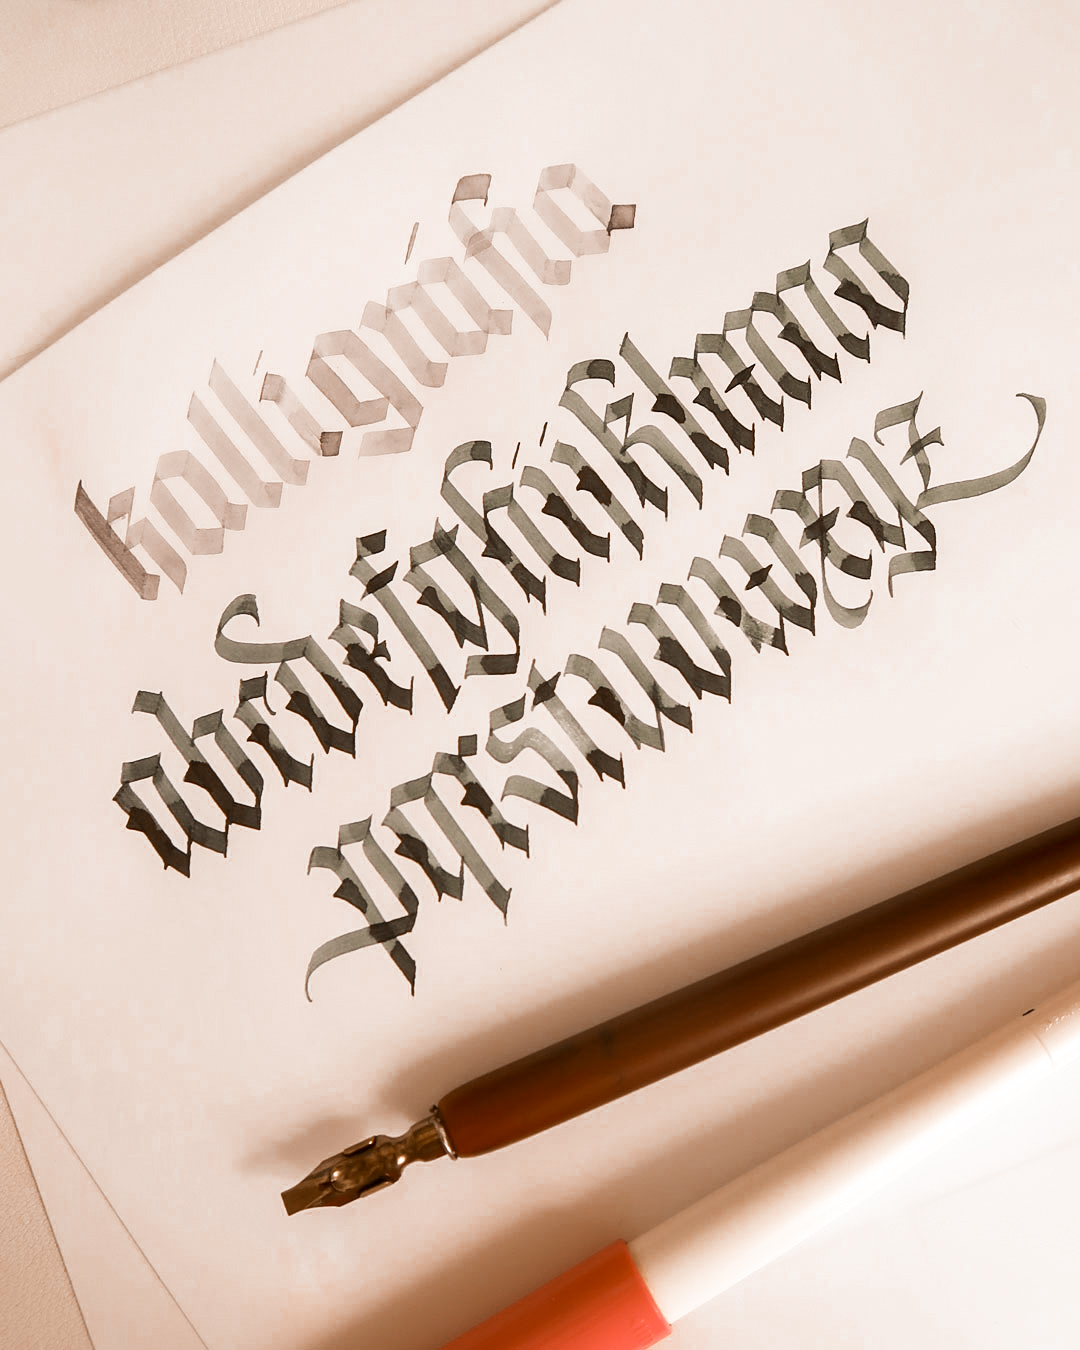 kalligráfia.
abcdefghijklmno
pqrstuvwxyz